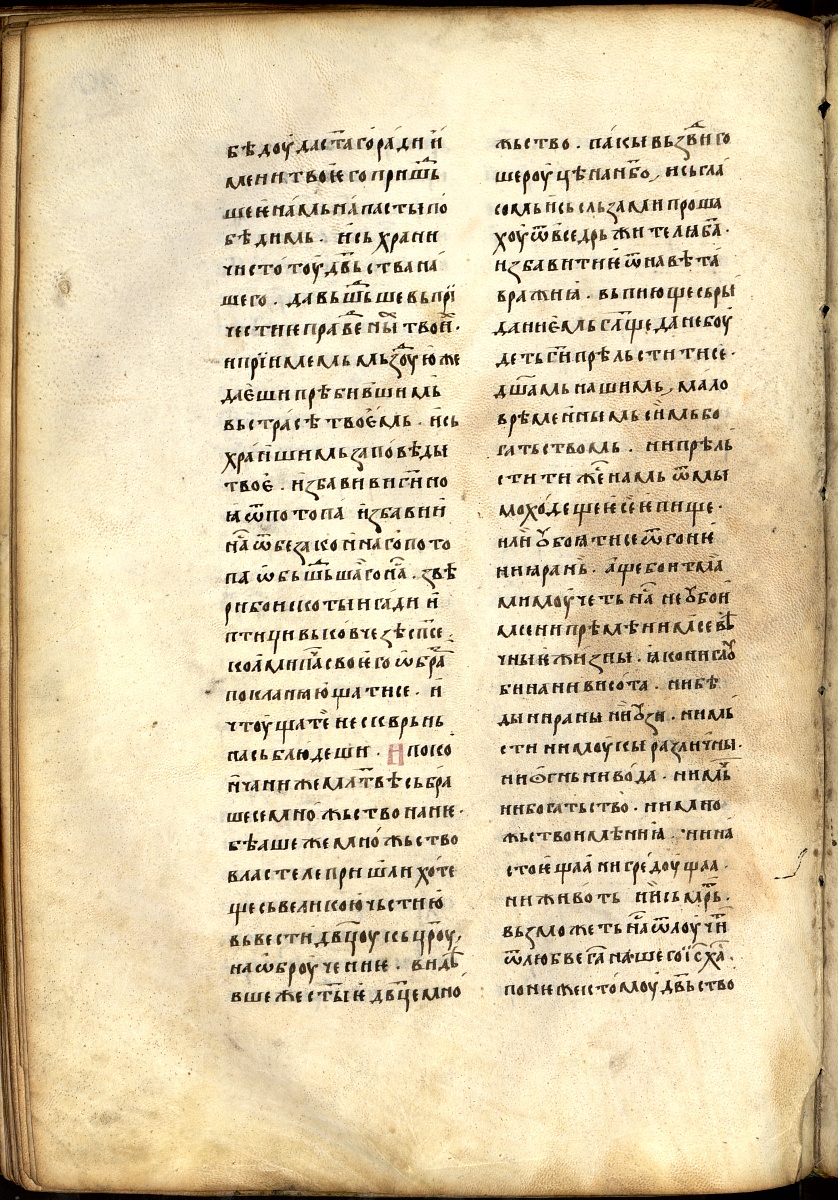 бѣдоу даста го ради и
мени твоѥго приш҃ь
шеѥ намь напасты по
бѣдимь · и сьхрани
чистотоу дв҃ьства на
шего · да вьш҃ьше вь при
честиѥ праве҃ныи твои ·
и приимемь мьзⷣоу юже
даѥши прѣбившимь
вь страсѣ твоѥмь · и сь
хранишимь заповѣды
твоѥ · избавивиги но
ꙗ ѿ потопа избави и
на҃ ѿ безакон'наго пото
па ѡбьш҃ьшаго на҃ · звѣ
ри бо и скоты и гади и
птици вь ковчезѣ сп҃се ·
коами па҃ своѥго ѡбра҃
покланающа ти се · и
чтоуща те не скврьнь
пась блюдеши · И по ско
н'чани же мл҃твѣ сьбра
ше се множьство на нѥ ·
бѣаше же множьство
властеле пришли хоте
ще сь великою чьстию
вьвести дв҃цоу кь цр҃оу,
на ѡброучениѥ · видѣ
вше же ст҃ыѥ дв҃це мно
жьство · пакы вьзⷣвиго
ше роуцѣ на нб҃о, и сь гла
сомь и сь сльзами проша
хоу ѿ вседрьжителꙗ ба҃ ·
избавити ѥ ѿ навѣта
вражиꙗ · вьпиюще сь ры
даниѥмь гл҃ще да не боу
деть ги҃ прѣльстити се ·
дш҃амь нашимь, мало
врѣмен'нымь симь бо
гатьством · ни прѣль
стити же намь ѿ мы
моходещеѥ сеѥ пище ·
или ꙋбоꙗти се ѿ гонѥ
ниꙗ рань · аще бо и тма҃
ми моучеть на҃ не ꙋбои
м се ни прѣмѣним се вѣ
чныѥ жизны · ꙗко ни глꙋ
бина ни висота · ни бѣ
ды ни раны ни ꙋзи · ни мь
сти ни моукы различны ·
ни ѡгнь ни вода · ни мьⷱ
ни богатьство · ни мно
жьство имѣниꙗ · ни на
стоѥщаа ни гредоущаа ·
ни животь ни сьмрⷮь ·
вьзможеть на҃ ѿлоучи
ѿ любве га҃ нашего іс҃ ха҃ ·
понѥже истомоу дв҃ьство